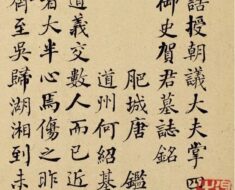 話授朝議大夫掌四
御史賀君墓誌銘
肥城唐鑑
道州何紹基
道義交數人而已近
者大半心焉傷之昨
至吳歸湖湘到未